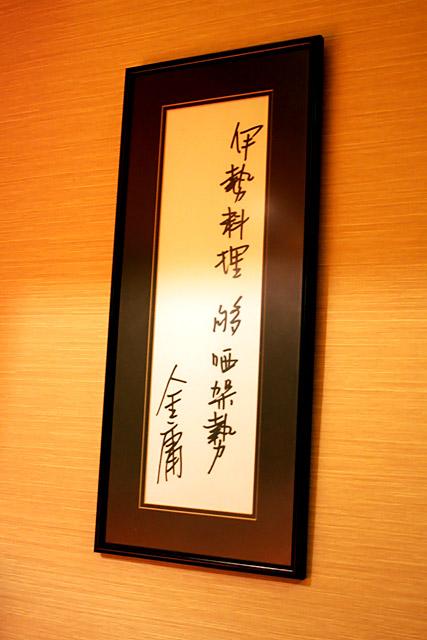 伊勢料理 夠晒架勢
金庸